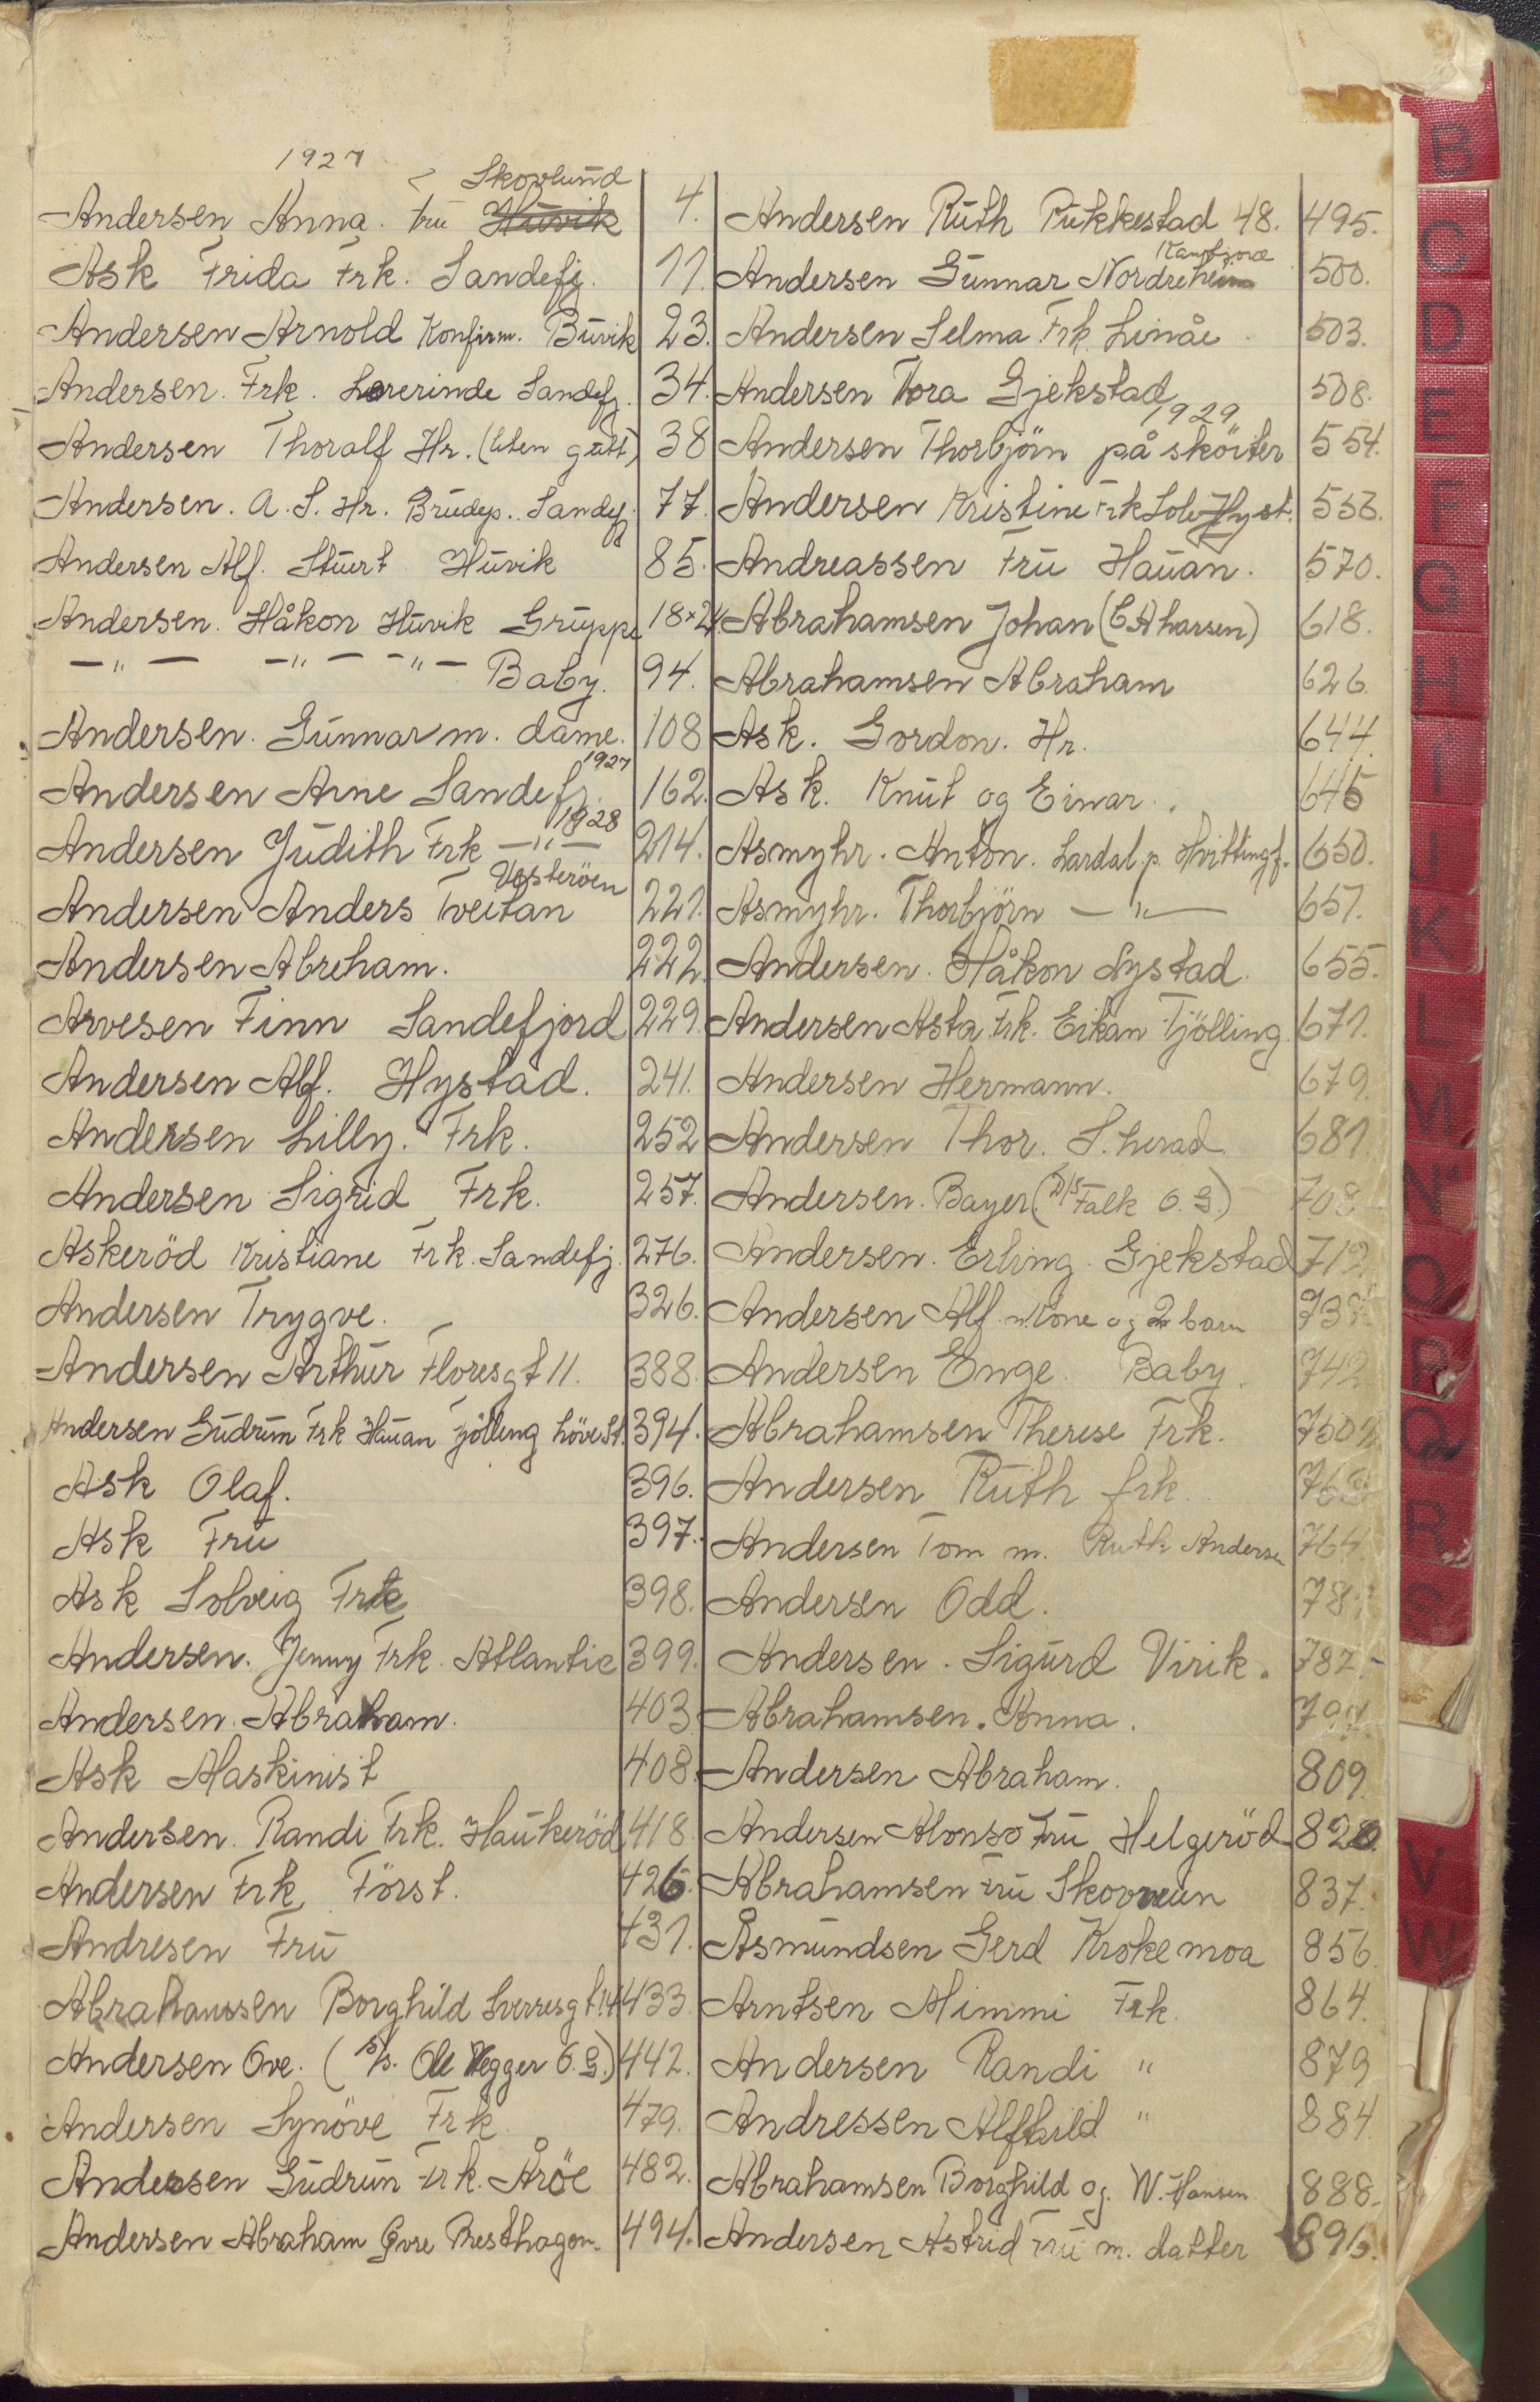 1927
Skovlund
Andersen Anna. Fru Huvik 4.
Ask Frida Frk. Sandefj. 11.
Andersen Arnold Konfirm. Buvik 23.
Andersen. Frk. Lærerinde Sandefj. 34.
Andersen Thoralf Hr. (liten gutt) 38
Andersen. A. S. Hr. Brudep. Sandefj. 77.
Andersen Alf. Stuert Huvik 85.
Andersen. Håkon Huvik Gruppe 18×24
—"— —"— —"— Baby. 94.
Andersen. Gunnar m. dame. 108
1927
Andersen Arne Sandefj. 162.
1928
Andersen Judith Frk —"— 214.
Vesteröen
Andersen Anders Tveitan 221.
Andersen Abreham. 222.
Arvesen Finn Sandefjord 229.
Andersen Alf. Hystad. 241.
Andersen Lilly. Frk. 252
Andersen Sigrid Frk. 257.
Askeröd Kristiane Frk. Sandefj. 276.
Andersen Trygve. 326.
Andersen Arthur Floresgt 11. 388.
Andersen Gudrun Frk Hauan Tjölling höve St. 394.
Ask Olaf. 396.
Ask Fru 397.
Ask Solveig Frk 398.
Andersen. Jenny Frk. Atlantic 399.
Andersen. Abraham. 403
Ask Maskinist 408.
Andersen. Randi Frk. Haukeröd 418
Andersen Frk Först. 426.
Andresen Fru 431.
Abrahamssen Borghild Sverresgt 14 433.
Andersen Ove. (S/s. Ole Wegger Ö. G.) 442.
Andersen Synöve Frk. 479.
Andersen Gudrun Frk. Åröe 482.
Andersen Abraham Övre Presthagen. 494.
Andersen Ruth Pukkestad 48. 495.
Kamfjord
Andersen Gunnar Nordreheim 500.
Andersen Selma Frk. Linåe 503.
Andersen Thora Gjekstad 508.
1929
Andersen Thorbjörn på sköiter 554.
Andersen Kristine Frk Hyst. 556.
Andreassen Fru Hauan. 570.
Abrahamsen Johan (C. A. Larsen) 618.
Abrahamsen Abraham 626.
Ask. Gordon. Hr. 644.
Ask. Knut og Einar. 645
Asmyhr. Anton. Lardal p. Hvittingf. 650.
Asmyhr. Thorbjörn —"— 651.
Andersen. Håkon Nystad. 655.
Andersen Asta. Frk. Eikan Tjölling. 671.
Andersen Hermann. 679.
Andersen Thor. S. herad. 681.
Andersen. Bayer (D/S Falk Ö. G.) 708
Andersen. Erling. Gjekstad 712
Andersen Alf. m Kone og 2 barn
Andersen Enge. Baby. 742
Abrahamsen Therese Frk. 750½
Andersen Ruth frk. 763
Andersen Tom m. Ruth Andersen 764
Andersen Odd.
Andersen. Sigurd Virik. 782.
Abrahamsen. Anna.
Andersen Abraham. 809.
Andersen Alonso Fru Helgeröd 820.
Abrahamsen Fru Skovveien 837.
Åsmundsen Gerd Krokemoa 856.
Arntsen Mimmi Frk. 864.
Andersen Randi " 879
Andressen Alfhild " 884.
Abrahamsen Borghild og. W. Hansen 888.
Andersen Astrid Fru m. datter 896.
B
C
D
E
F
G
H
I
J
K
L
M
N
O
P
Q
R
S
V
W